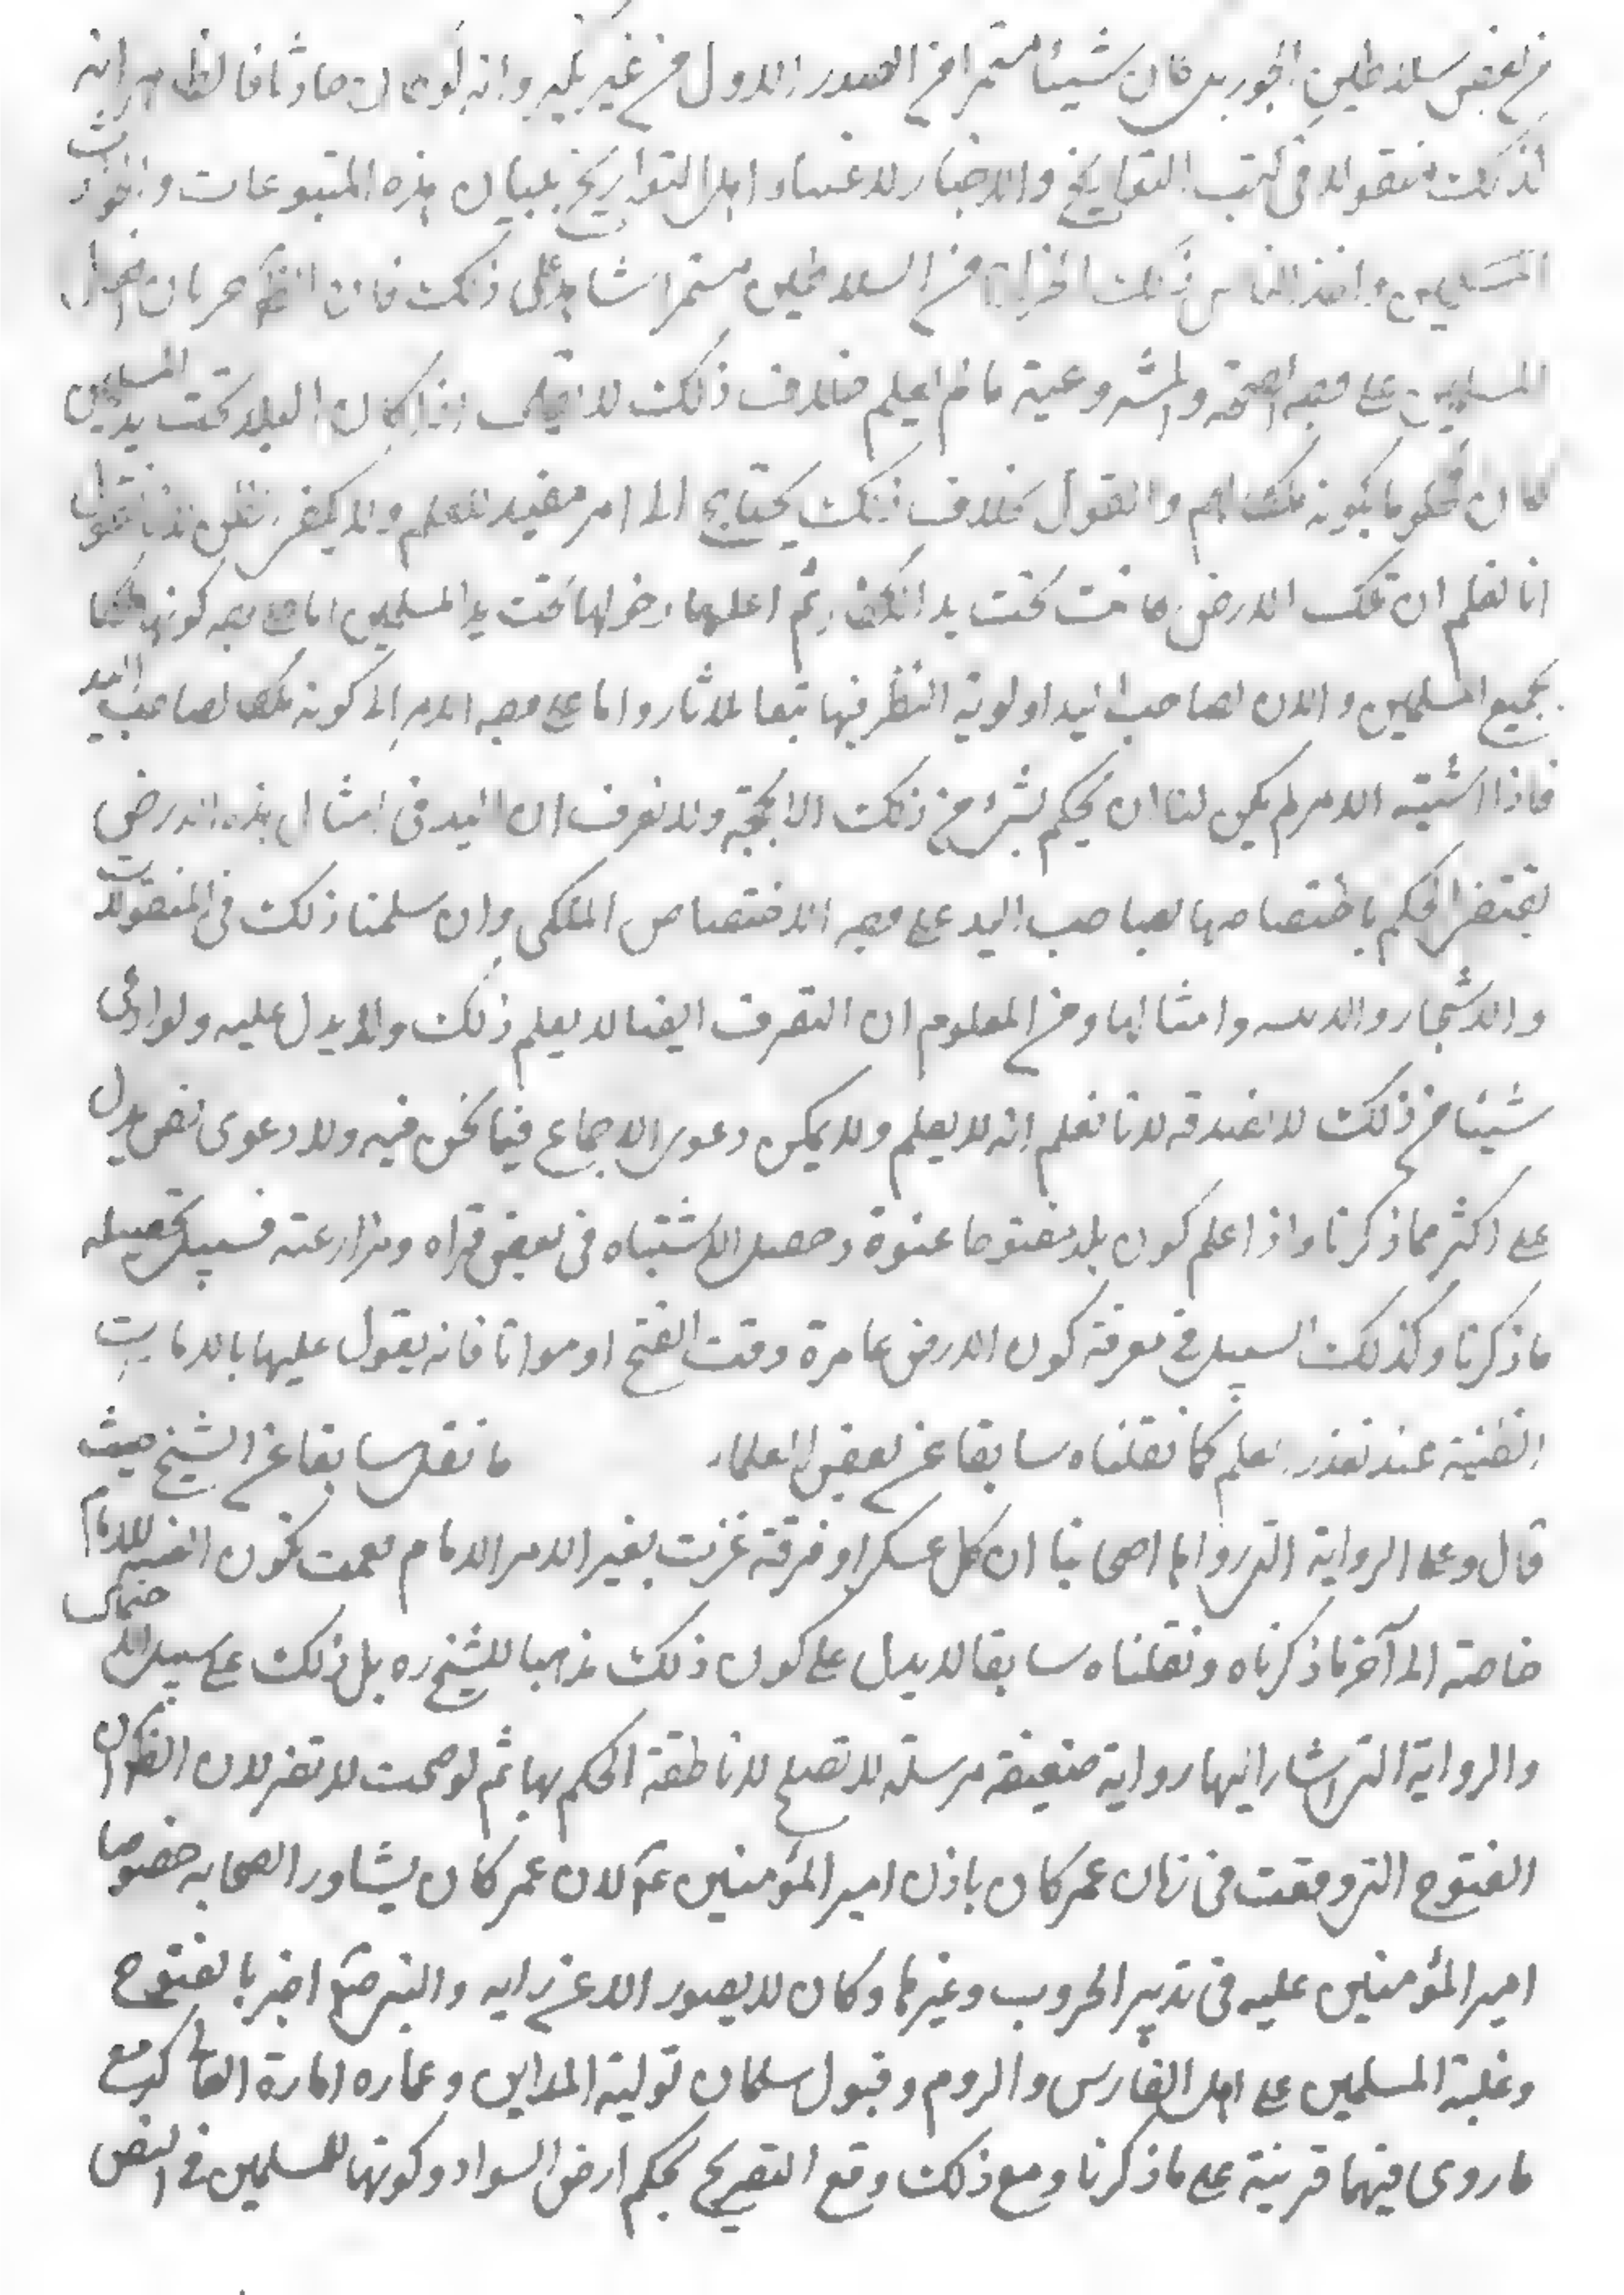 من بعض سلاطين الجور بل كان شيئا مستمرا من الصدر الاول من غير نكير وانه لو كان حادثا فالظاهر انه
لذلك منقولا في كتب التواريخ والاخبار لاعتناء اهل التواريخ ببيان هذه المتبوعات والحوادث
المسلمين واخذ الناس ذلك الخراج من السلاطين مستمرا شاهد على ذلك فان الظ جريان افعال
المسلمين على وجه الصحة والمشروعية ما لم يعلم خلاف ذلك لا يقال اذا كان البلد تحت يد المسلمين
كان محكوما بكونه ملكا لهم والقول بخلاف ذلك يحتاج الى امر مفيد للعلم ولا يكفي الظن لانا نقول
انا نعلم ان تلك الارض كانت تحت يد الكفار ثم اعلمها دخولها تحت يد المسلمين اما على وجه كونها ملكا
بجميع المسلمين والان لصاحب اليد اولوية النظر فيها تبعا للاثار واما على وجه الامر الى كونه ملكا لصاحب اليد
فاذا اشتبه الامر لم يكن لنا ان نحكم بشئ من ذلك الا بحجة ولا نعرف ان اليد في امثال هذه الارض
يقتضى الحكم باختصاصها لصاحب اليد على وجه الاختصاص الملكى وان سلمنا ذلك في المنقولات
والاشجار والابنية وامثالها ومن المعلوم ان التصرف ايضا لا يعلم ذلك ولا يدل عليه ولو ادعى
شيئا من ذلك لا نصدقه لانا نعلم انه لا يعلم ولا يمكن دعوى الاجماع فيما نحن فيه ولا دعوى نص يدل
على اكثر مما ذكرنا واذا علم كون بلد مفتوحا عنوة وحصل الاشتباه في بعض قراه ومزارعته فسبيل تحصيله
ما ذكرنا وكذلك السبيل في معرفة كون الارض عامرة وقت الفتح او مواتا فانه يقول عليها بالامارات
الظنية عند تعذر العلم كما نقلناه سابقا عن بعض العلماء ما نقل سابقا عن الشيخ حيث
قال وعلى الرواية التي رواها اصحابنا ان كل عسكر او فرقة غزت بغير الامر الامام فغنمت تكون الغنيمة للامام
خاصة الى آخر ما ذكرناه ونقلناه سابقا لا يدل على كون ذلك مذهبا للشيخ ره بل ذلك على سبيل الاحتمال
والرواية التي اشار اليها رواية ضعيفة مرسلة لا تصلح لاناطقة الحكم بها ثم لو صحت لا تضر لان الظ ان
الفتوح التي وقعت في زمان عمر كان باذن امير المؤمنين ع لان عمر كان يشاور الصحابه خصوصا
امير المؤمنين عليه في تدبير الحروب وغيرها وكان لا يصدر الا عن رايه والنبي ص اخبر بالفتوح
وغلبة المسلمين على اهل الفارس والروم وقبول سلمان تولية المداين وعماره امارة العساكر مع
ما روى فيهما قرينة على ما ذكرنا ومع ذلك وقع التصريح بحكم ارض السواد وكونها للمسلمين في النص